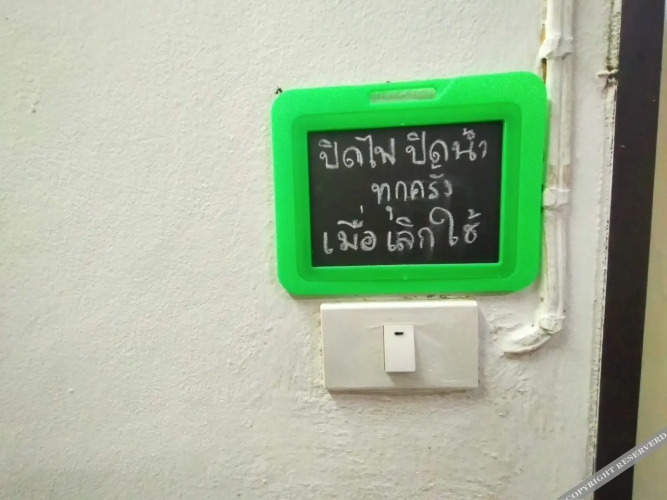 ปิดไฟ ปิดน้ำ
ทุกครั้ง
เมื่อ เลิก ใช้
COPYRIGHT RESERVERD